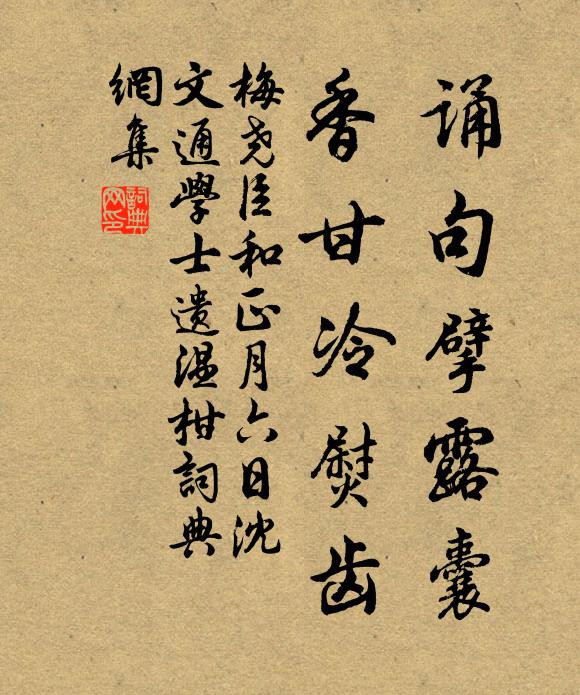 诵句擘露囊
香甘冷熨齿
梅尧臣和正月六日沈
文通學士遗温柑詞典
網集
詞典网印